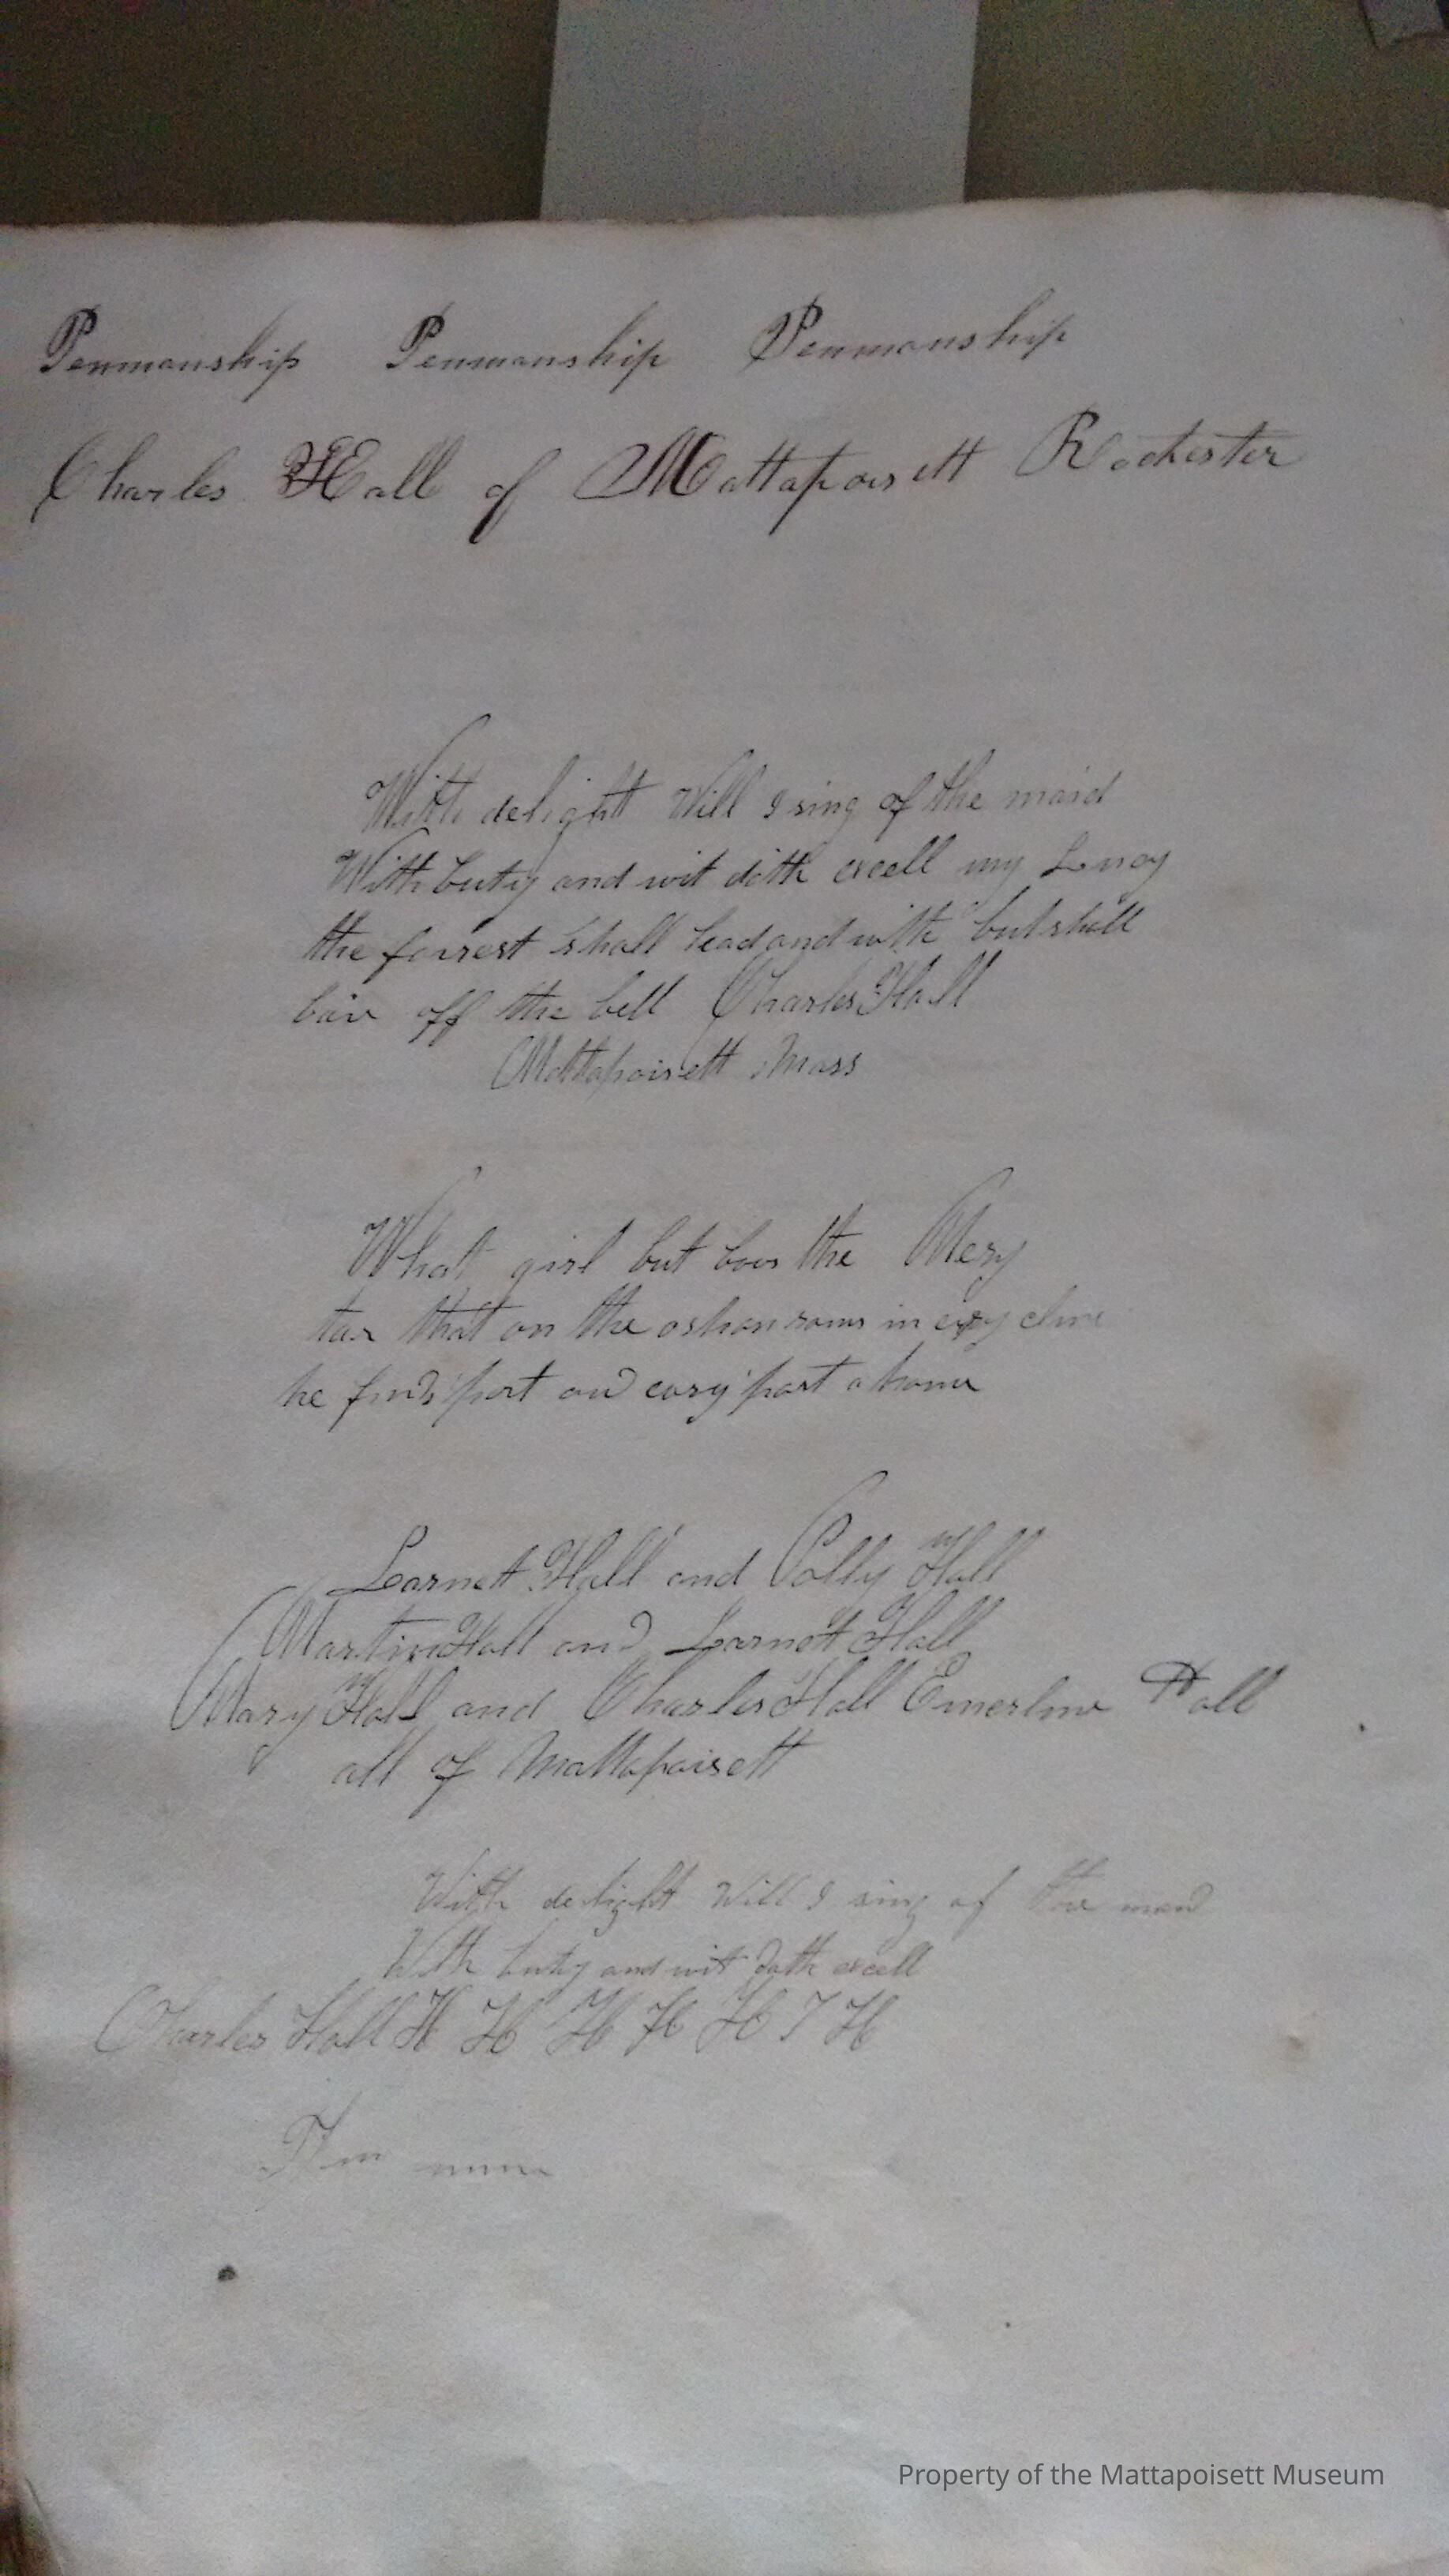 Penmanship Penmanship Penmanship
Charles Hall of Mattapoisett Rochester
With delight Will I sing of the maid
With buty and wit doth excell my Lucy
the forrest shall lead and with but shall
bair off the bell Charles Hall
Mattapoisett Mass
What girl but lovs the Mery
tar that on the oshan roams in evry clime
he finds port and evry port a home
Larnett Hall and Polly Hall
Martin Hall and Larnett Hall
Mary Hall and Charles Hall Emerline Hall
all of Mattapoisett
With delight Will I sing of the maid
With buty and wit doth excell
Charles Hall H H H H H I H
Property of the Mattapoisett Museum